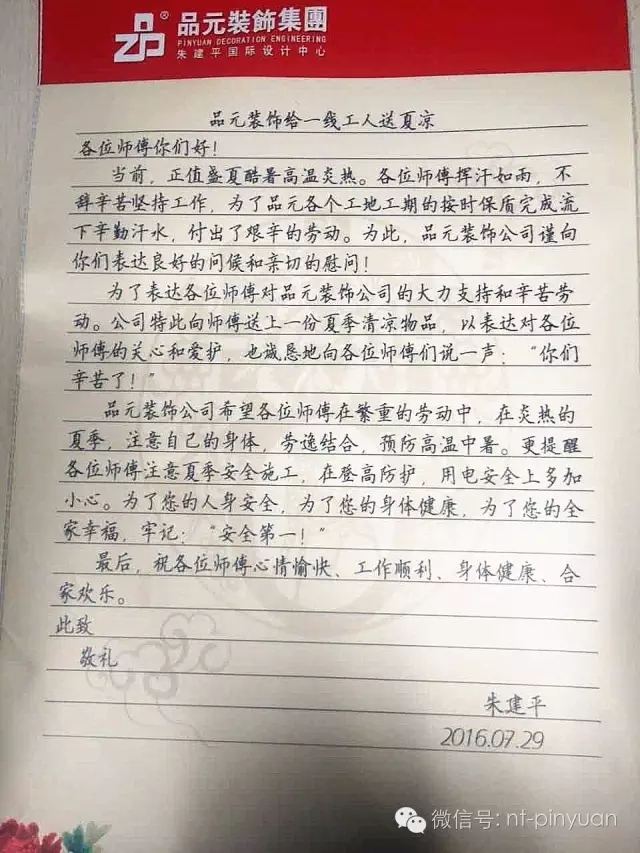 品元裝飾集團
PINYUAN DECORATION ENGINEERING
朱建平国际设计中心
品元装饰给一线工人送夏凉
各位师傅你们好!
当前,正值盛夏酷暑高温炎热。各位师傅挥汗如雨,不
辞辛苦坚持工作,为了品元各个工地工期的按时保质完成流
下辛勤汗水,付出了艰辛的劳动。为此,品元装饰公司谨向
你们表达良好的问候和亲切的慰问!
为了表达各位师傅对品元装饰公司的大力支持和辛苦劳
动。公司特此向师傅送上一份夏季清凉物品,以表达对各位
师傅的关心和爱护,也诚恳地向各位师傅们说一声:“你们
辛苦了!”
品元装饰公司希望各位师傅在繁重的劳动中,在炎热的
夏季,注意自己的身体,劳逸结合,预防高温中暑。更提醒
各位师傅注意夏季安全施工,在登高防护,用电安全上多加
小心。为了您的人身安全,为了您的身体健康,为了您的全
家幸福,牢记:“安全第一!”
最后,祝各位师傅心情愉快、工作顺利、身体健康、合
家欢乐。
此致
敬礼
朱建平
2016.07.29
微信号: nt-pinyuan